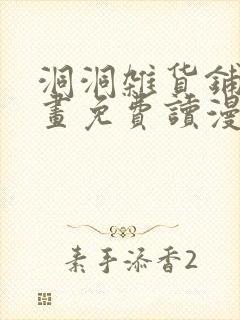 洞洞雜貨鋪
畫免費讀漫
素手添香2